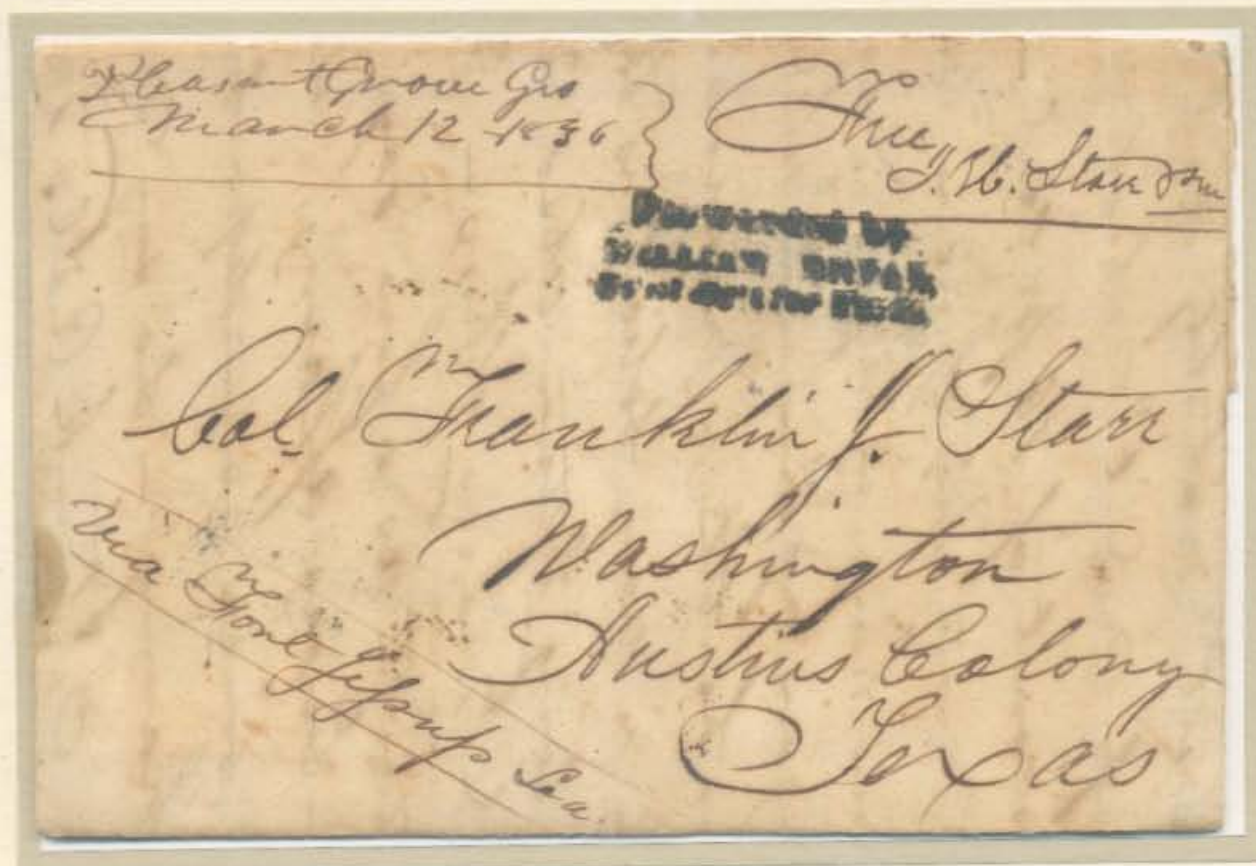 Pleasant Grove Geo
March 12 1836
Free
J. H. Starr PM
Forwarded by
WILLIAM BRYAN
Gen'l Ag't for Texas.
Col. Franklin J. Starr
Washington
Austins Colony
Texas
Via Fort Jessup Lea.